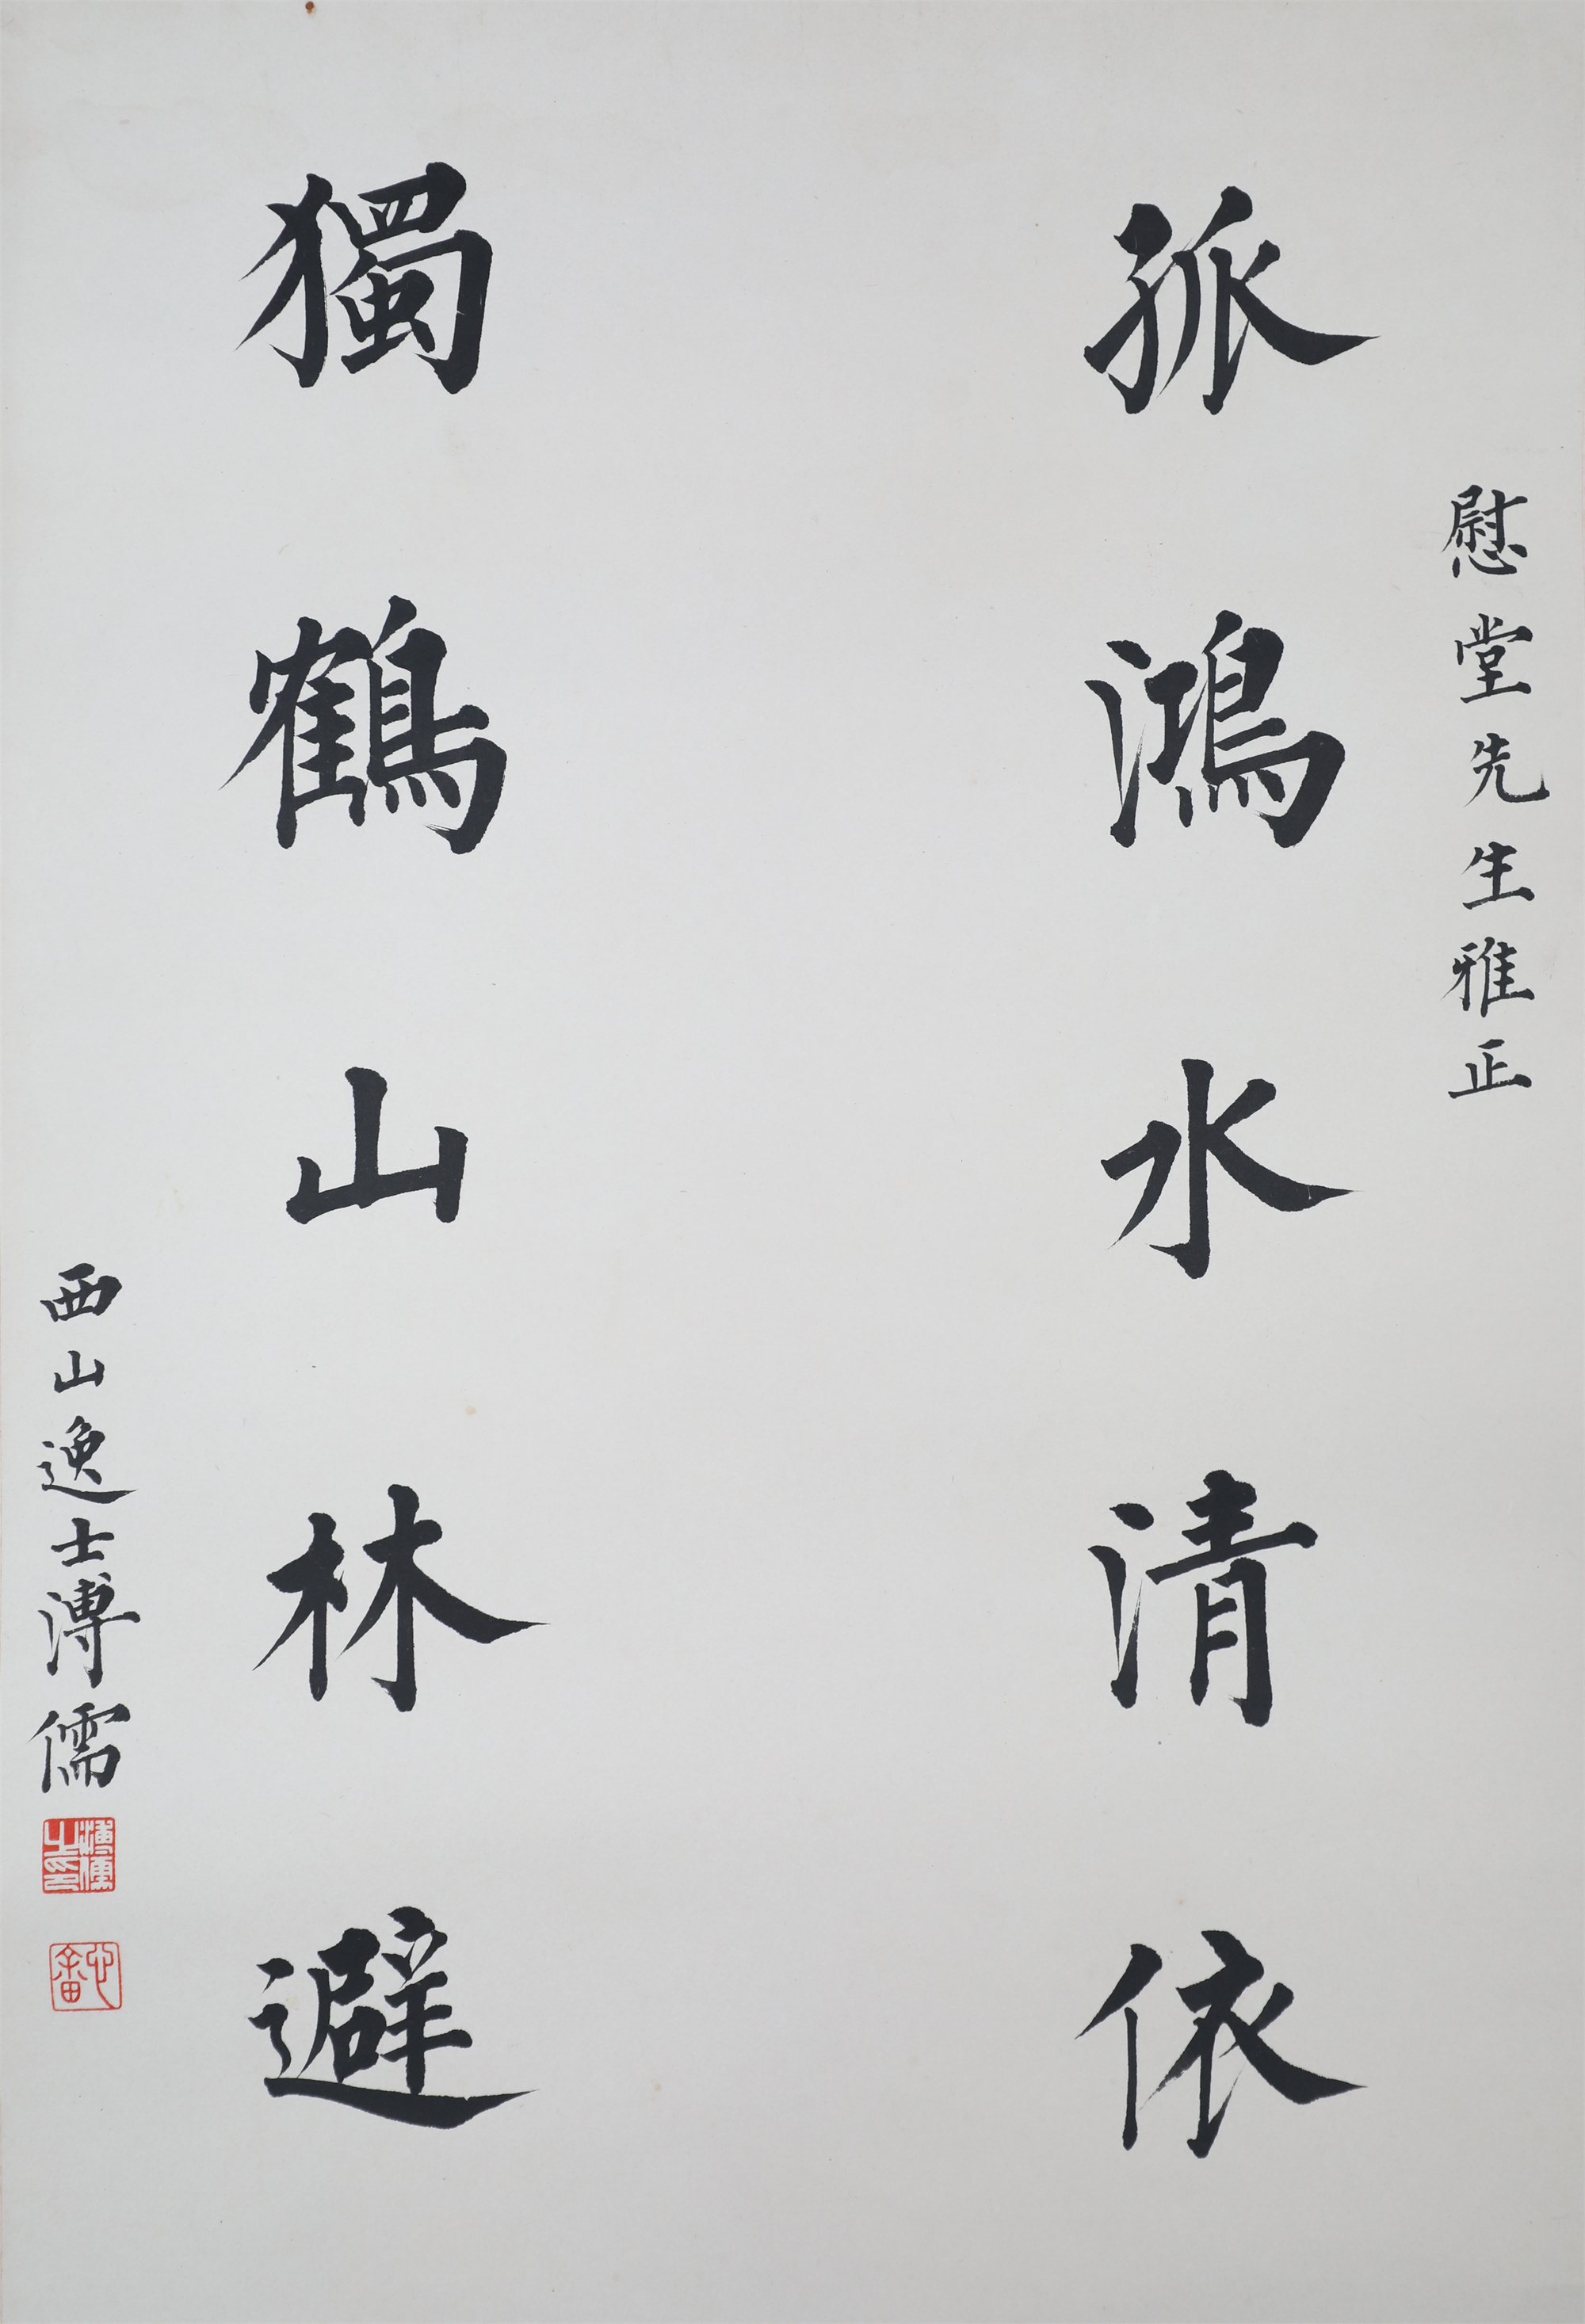 慰堂先生雅正
孤鴻水清依
獨鶴山林避
西山逸士溥儒
溥儒之印